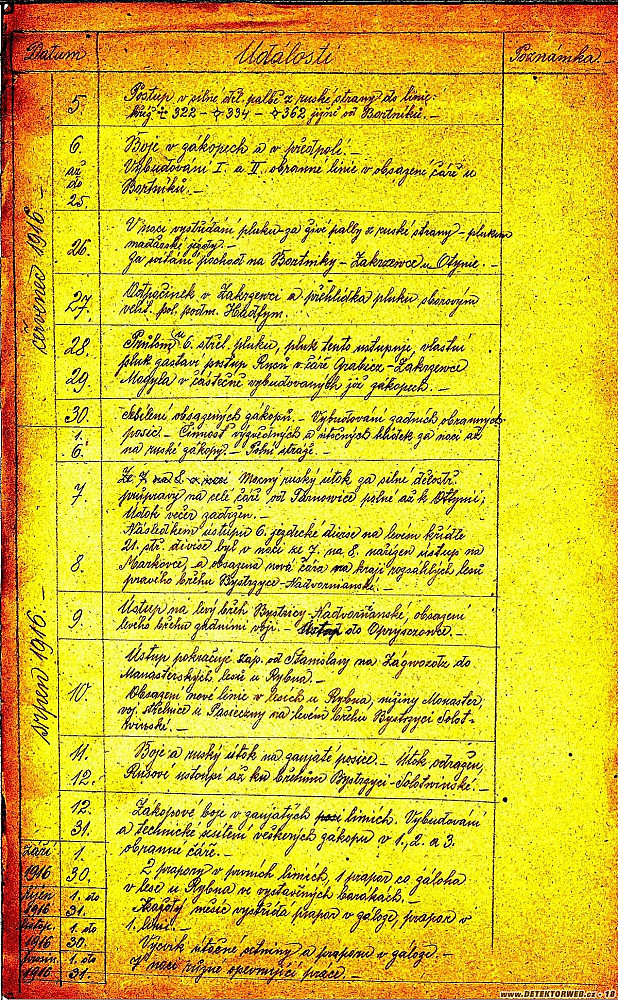 Datum Události Poznámka.-
červenec 1916.-
5. Postup v silné děl. palbě z ruské strany do linie:
322 - 334 - 362 jižně od Bortniků.-
6. Boje v zákopech a v předpolí.-
až Vybudování I. a II. obranné linie v obsazené čáře u
do Bortniků.-
25.
V noci vystřídání pluku za živé palby z ruské strany - plukem
26. maďarské jízdy.-
Za svítání pochod na Bortniky - Zakrzewce u Otynie.-
27. Odpočinek v Zakrzewci a přehlídka pluku sborovým
velit. pol. podm. Hadfym.-
28. Průlom u 6. střel. pluku, pluk tento ustupuje, vlastní
pluk zastaví postup Rusů v čáře Grabicz - Zakrzewce
29. Mogyla v částečně vybudovaných již zákopech.-
30. Sesílení obsazených zákopů.- Vybudování zadních obranných
srpen 1916.-
1. posic.- Činnost výzvědných a útočných hlídek za noci až
6. na ruské zákopy.- Polní stráže.-
Ze 7. na 8. v noci Mocný ruský útok za silné dělostř.
7. přípravy na celé čáře od polně až k Otynii;
Útok večer zadržen.-
Následkem ústupu 6. jezdecké divise na levém křídle
21. stř. divise byl v noci ze 7. na 8. nařízen ústup na
8. Markovce, a obsazena nová čára na kraji rozsáhlých lesů
pravého břehu Bystrzyce-Nadvornianské.-
9. Ústup na levý břeh Bystrzicy-Nadvorňanské, obsazení
levého břehu zadními voji.- Ústup do Opryszowce.-
Ústup pokračuje záp. od Stanislavy na Zagwozdz do
Monasterských lesů u Rybna.-
10. Obsazení nové linie v lesích u Rybna, nížiny Monaster,
voj. střelnice u Pasieczny na levém břehu Bystrzyci Solot-
winské.-
11. Boje a ruský útok na zaujaté posice.- Útok odražen,
12. Rusové ustoupí až ku břehům Bystrzyci-Solotwinské.-
12. Zákopové boje v zaujatých liniích. Vybudování
31. a technické sesílení veškerých zákopů v 1., 2. a 3.
obranné čáře.-
září 1. 2 prapory v prvních liniích, 1 prapor co záloha
1916 30. v lese u Rybna ve vystavěných barákách.-
říjen 1. do Každý měsíc vystřídá prapor v záloze, prapor v
1916 31. 1. linii.-
listop. 1. do
1916 30. Výcvik útočné setniny a praporu v záloze.-
prosin. 1. do V noci různé opevňující práce.-
1916 31.
www.DETEKTORWEB.cz - 18